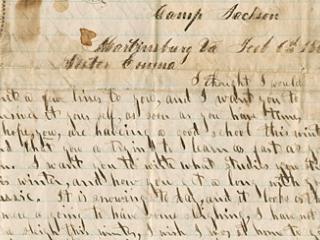 Camp Jackson
Martinsburg Va Feb 6th 186
Sister Emma
I thought I would
a few lines to you, and I want you to
answer it your self, as soon as you have time,
hope you, are haveing a good school this wint
that you a trying to learn as fast as
I want you to write what studies you
is winter, and how you get a long with your
It is snowing to day, and it looks as tho
were a going to have some sleighing, I have not
sleigh this winter, I wish I was at home to